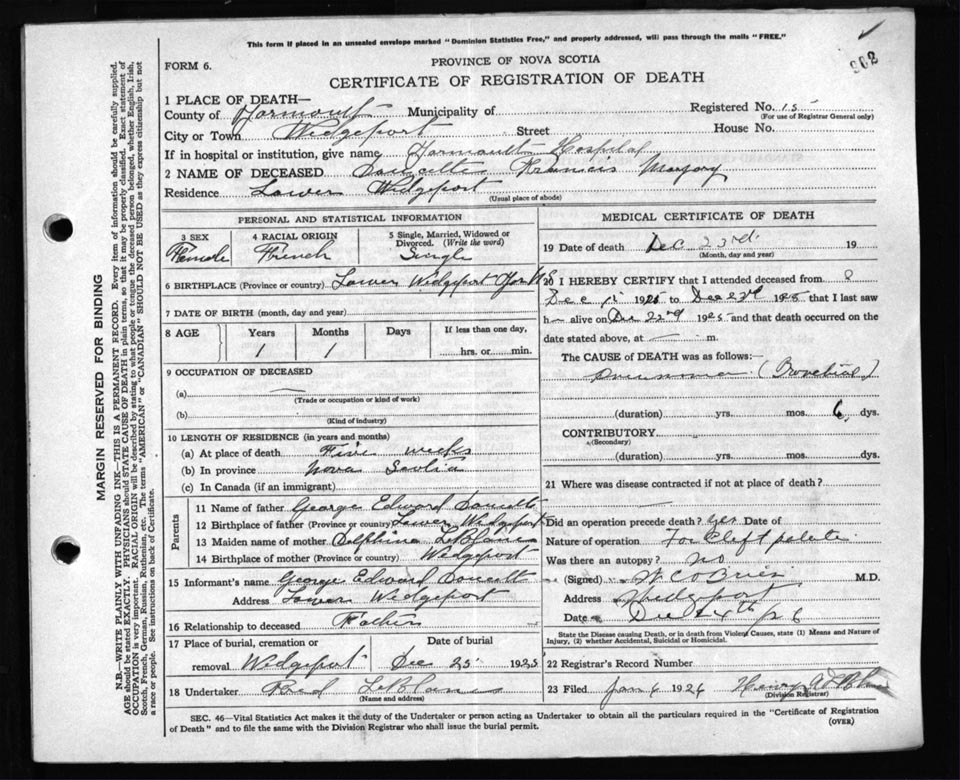 This form if placed in an unsealed envelope marked "Dominion Statistics Free," and properly addressed, will pass through the mails "FREE."
902
FORM 6.
PROVINCE OF NOVA SCOTIA
CERTIFICATE OF REGISTRATION OF DEATH
1 PLACE OF DEATH—
County of Yarmouth Municipality of Registered No. 15
(For use of Registrar General only)
City or Town Wedgeport Street House No.
If in hospital or institution, give name Yarmouth Hospital
2 NAME OF DECEASED Doucette Francis Marjory
Residence Lower Wedgeport
(Usual place of abode)
PERSONAL AND STATISTICAL INFORMATION
3 SEX 4 RACIAL ORIGIN 5 Single, Married, Widowed or Divorced. (Write the word)
Female French Single
6 BIRTHPLACE (Province or country) Lower Wedgeport Yar N S
7 DATE OF BIRTH (month, day and year)
8 AGE Years Months Days If less than one day,
1 1 hrs. or min.
9 OCCUPATION OF DECEASED
(a)
(Trade or occupation or kind of work)
(b)
(Kind of industry)
10 LENGTH OF RESIDENCE (in years and months)
(a) At place of death Five weeks
(b) In province Nova Scotia
(c) In Canada (if an immigrant)
Parents
11 Name of father George Edward Doucett
12 Birthplace of father (Province or country) Lower Wedgeport
13 Maiden name of mother Delphina LeBlanc
14 Birthplace of mother (Province or country) Wedgeport
15 Informant's name George Edward Doucett
Address Lower Wedgeport
16 Relationship to deceased Father
17 Place of burial, cremation or Date of burial
removal Wedgeport Dec 25 1925
18 Undertaker LeBlanc
(Name and address)
MEDICAL CERTIFICATE OF DEATH
19 Date of death Dec 23rd. 19
(Month, day and year)
20 I HEREBY CERTIFY that I attended deceased from
Dec 1925 to Dec 23d 1925 that I last saw
h alive on Dec 22nd 1925 and that death occurred on the
date stated above, at m.
The CAUSE of DEATH was as follows:—
Pneumonia (Bronchial)
(duration) yrs. mos. 6 dys.
CONTRIBUTORY
(Secondary)
(duration) yrs. mos. dys.
21 Where was disease contracted if not at place of death?
Did an operation precede death? Yes Date of
Nature of operation For Cleft palate
Was there an autopsy? no
(Signed) W C O'Brien M.D.
Address Wedgeport
Date Dec 24th /26
State the Disease causing Death, or in death from Violent Causes, state (1) Means and Nature of
Injury, (2) whether Accidental, Suicidal or Homicidal.
22 Registrar's Record Number
23 Filed Jan 6 1926 Henry A LeBlanc
(Division Registrar)
SEC. 46—Vital Statistics Act makes it the duty of the Undertaker or person acting as Undertaker to obtain all the particulars required in the "Certificate of Registration
of Death" and to file the same with the Division Registrar who shall issue the burial permit. (OVER)
MARGIN RESERVED FOR BINDING
N.B.—WRITE PLAINLY WITH UNFADING INK—THIS IS A PERMANENT RECORD. Every item of information should be carefully supplied.
AGE should be stated EXACTLY. PHYSICIANS should STATE CAUSE OF DEATH in plain terms, so that it may be properly classified. Exact statement of
OCCUPATION is very important. RACIAL ORIGIN will be described by stating to what people or tongue the deceased person belonged, whether English, Irish,
Scotch, French, German, Russian, Ruthenian, etc. The terms "AMERICAN" or "CANADIAN" SHOULD NOT BE USED as they express citizenship but not
a race or people. See instructions on back of Certificate.